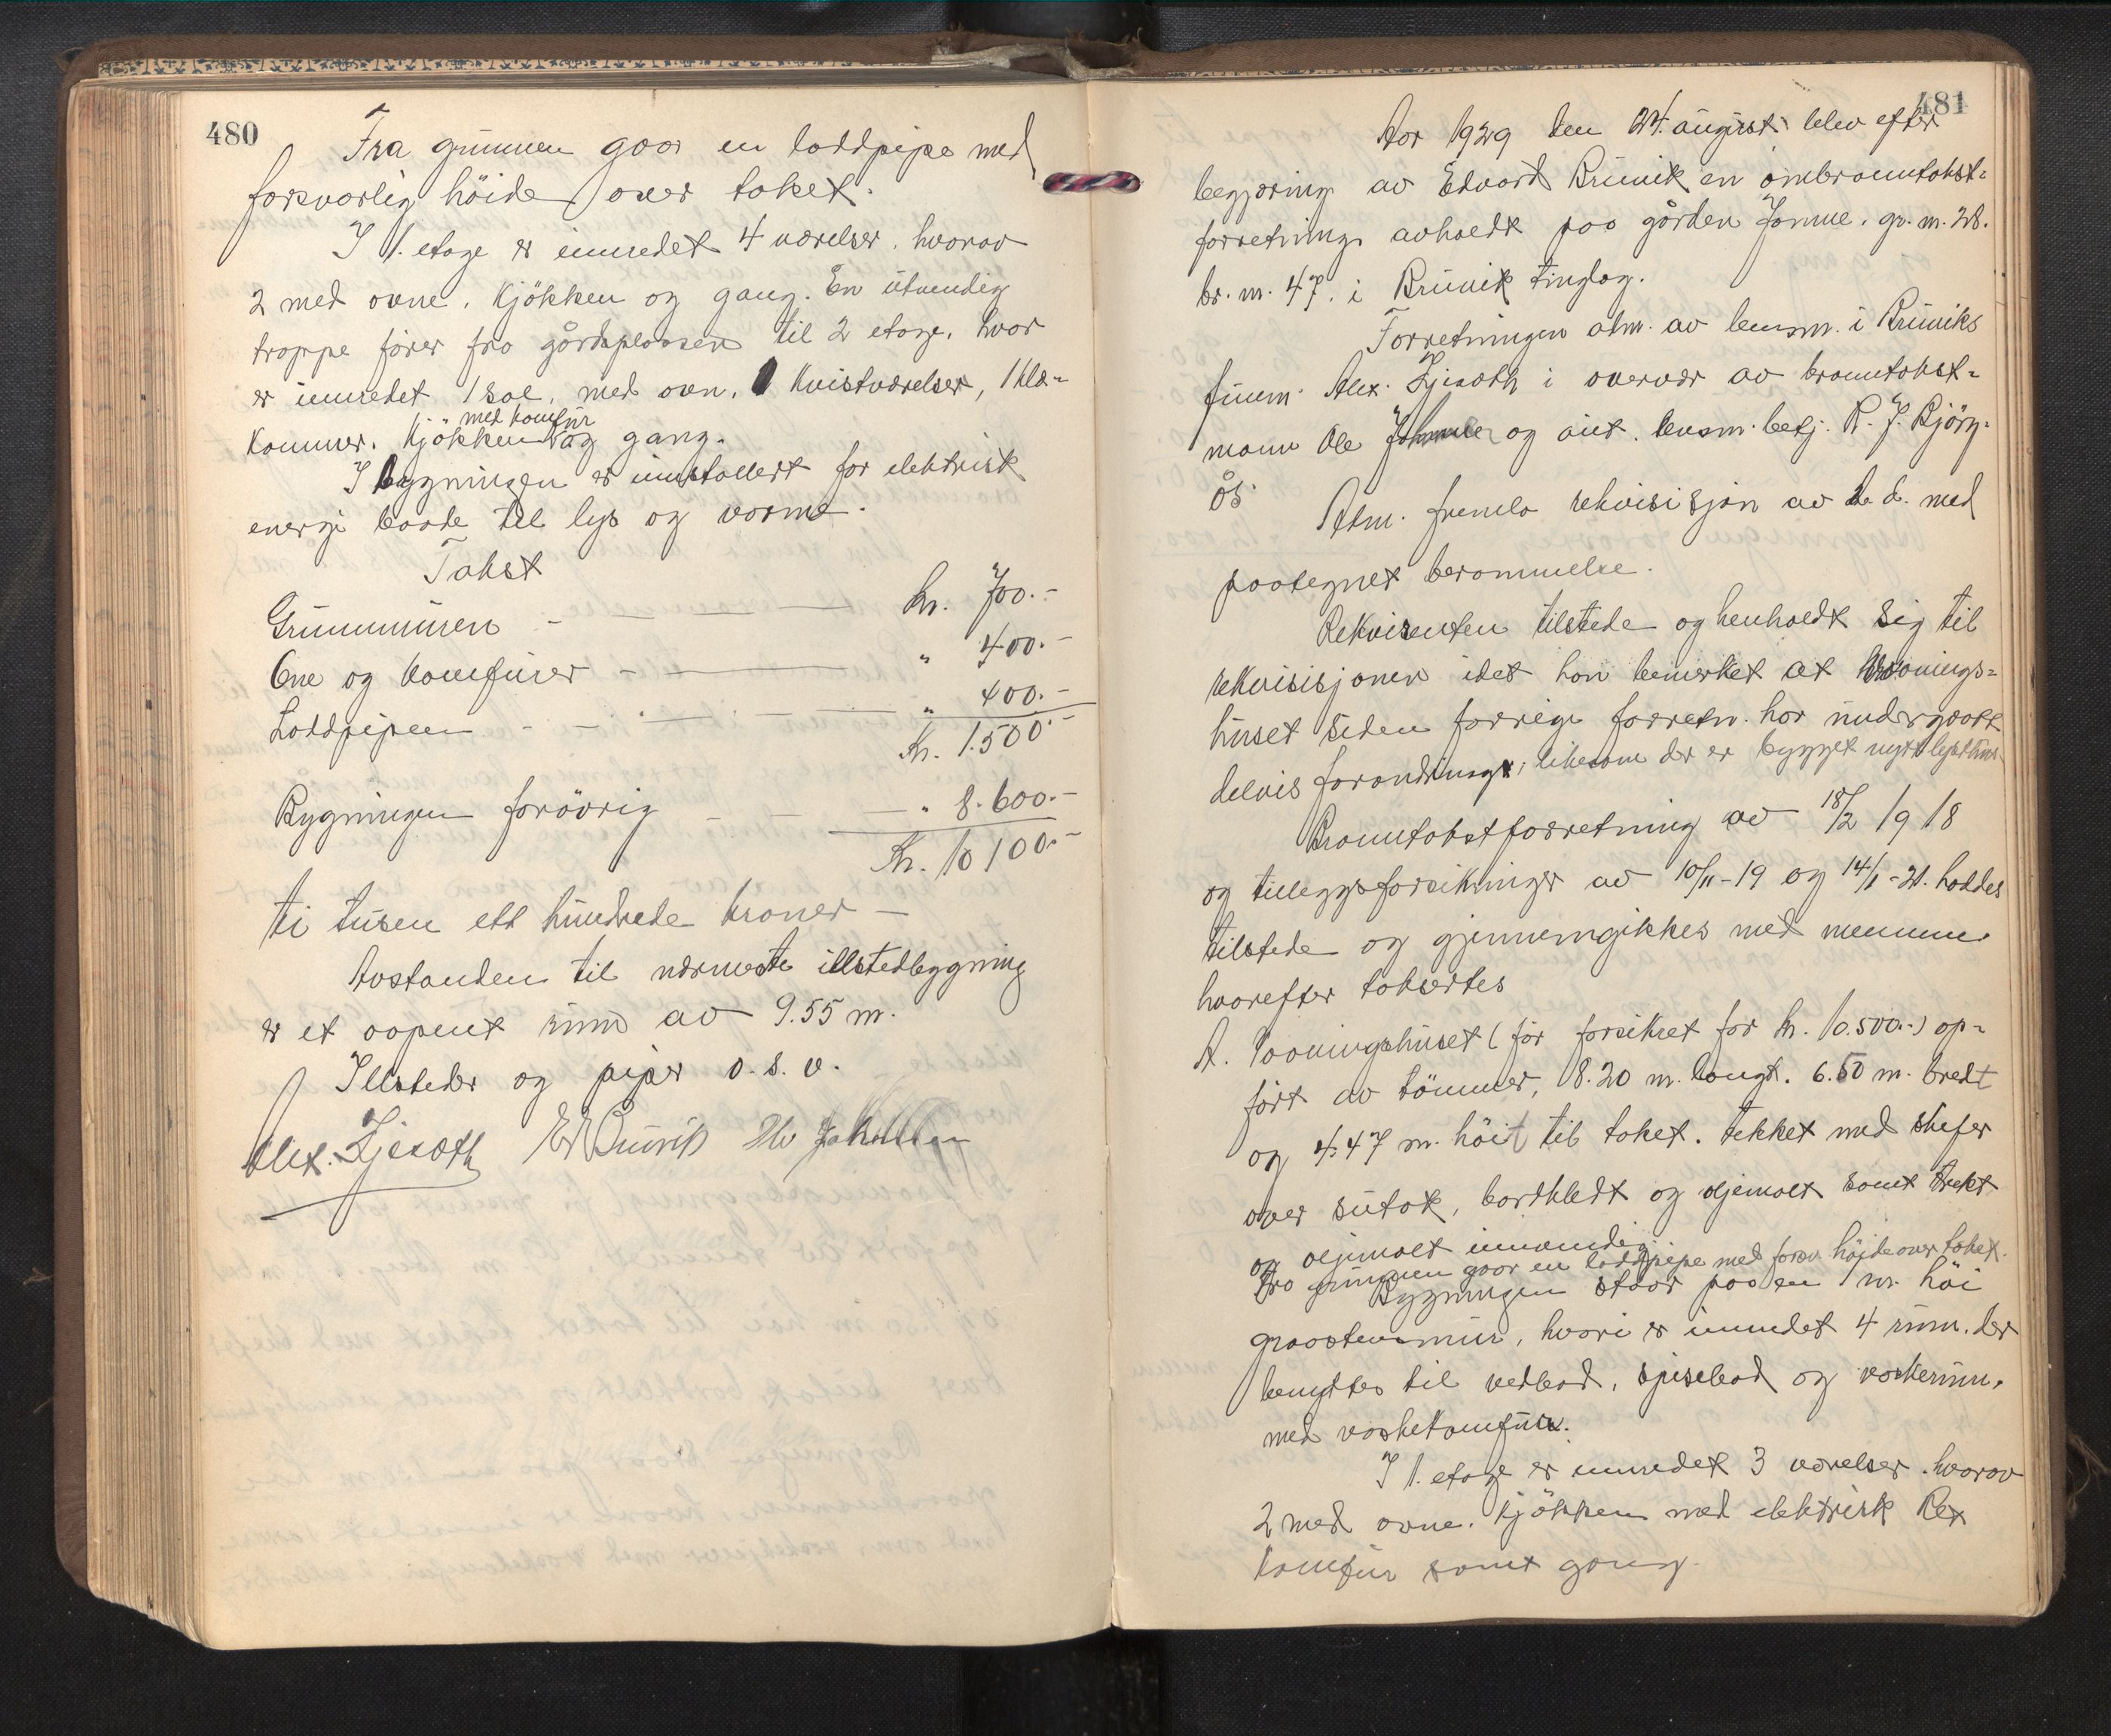 480
Fra grunnen gaar en loddpipe med
forsvarlig höide over taket.
I 1. etage er innredet 4 værelser, hvorav
2 med ovne, kjökken og gang. En utvendig
trappe förer fra gårdsplassen til 2 etage, hvor
er innredet 1 sal, med ovn, kvistværelser, 1 klæ-
kammer, kjökken med komfur og gang.
I bygningen er innstallert for elektrisk
energi baade til lys og varme.
Takst
Grunnmuren - — — kr. 700.-
Ovne og komfurer - — " 400.-
Loddpipen - - — — — " 400.-
Kr. 1.500.-
Bygningen forövrig - - — " 8.600.-
Kr. 10100.-
ti tusen ett hundrede kroner —
Avstanden til nærmeste illstedbygning
er et aapent rum av 9.55 m.
Illsteder og piper o.s.v.
Alex. E Bruvik
481
Aar 1929 den 24. august blev efter
begjæring av Edvard Bruvik en ombranntakst-
forretning avholdt paa gården Jamne, gr. nr. 28.
br. nr. 47. i Bruvik tinglag.
Forretningen adm. av lensm. i Bruviks
Alex. i overvær av branntakst-
mann Ole og aut. lensm. betj. R. J. Björg-
ås.
Adm. fremla rekvisisjon av d. d. med
paategnet berammelse.
Rekvirenten tilstede og henholdt sig til
rekvisisjonen idet han bemerket at vaanings-
huset siden forrige forretn. har undergaatt
delvis forandringer, likesom der er bygget nytt
Branntakstforretning av 18/2 1918
og tilleggsforsikringer av 10/11-19 og 14/1-21. haddes
tilstede og gjennemgikkes med mennene
hvorefter taksertes
A. Vaaningshuset (för forsikret for kr. 10.500.-) op-
fört av tömmer, 8.20 m. langt. 6.50 m. bredt
og 4.47 m. höit til taket. tekket med skifer
over sutak, bordklædt og oljemalt samt trukt
og oljemalt innvendig.
Fra grunnen gaar en loddpipe med forsv. höide over taket.
Bygningen staar paa en 1 m. höi
graastensmur, hvori er innredet 4 rum. der
benyttes til vedbod, spisebod og vaskerum,
med vaskekomfur.
I 1. etage er innredet 3 værelser, hvorav
2 med ovne, kjökken med elektrisk Rex
komfur samt gang.